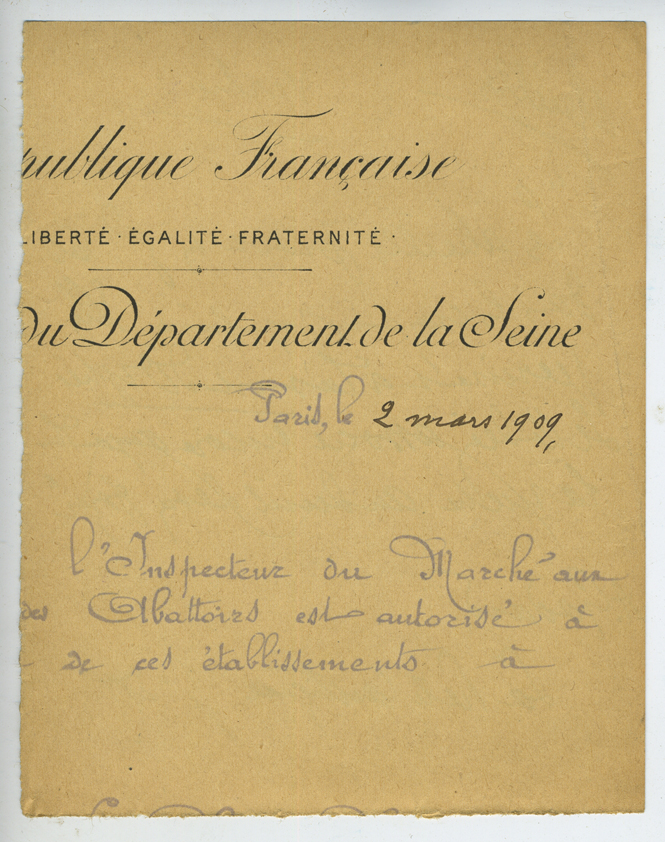 publique Française
LIBERTÉ · ÉGALITÉ · FRATERNITÉ ·
du Département de la Seine
Paris, le 2 mars 1909,
l'Inspecteur du Marché aux
des Abattoirs est autorisé à
de ces établissements à